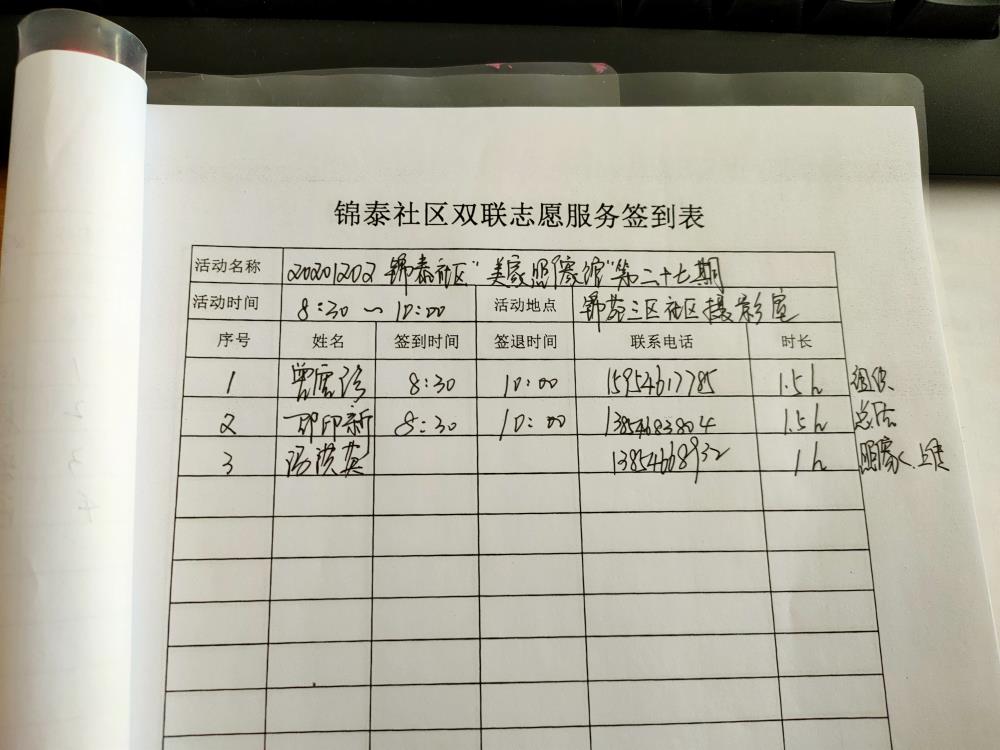 锦泰社区双联志愿服务签到表
活动名称 20201202 锦泰社区"美家照像馆"第二十七期
活动时间 8:30 ~ 10:00 活动地点 锦苑三区社区摄影室
序号 姓名 签到时间 签退时间 联系电话 时长
1 8:30 10:00 15954617785 1.5h
2 印新 8:30 10:00 13854683804 1.5h
3 冯洪英 13854668932 1h 照像、上传